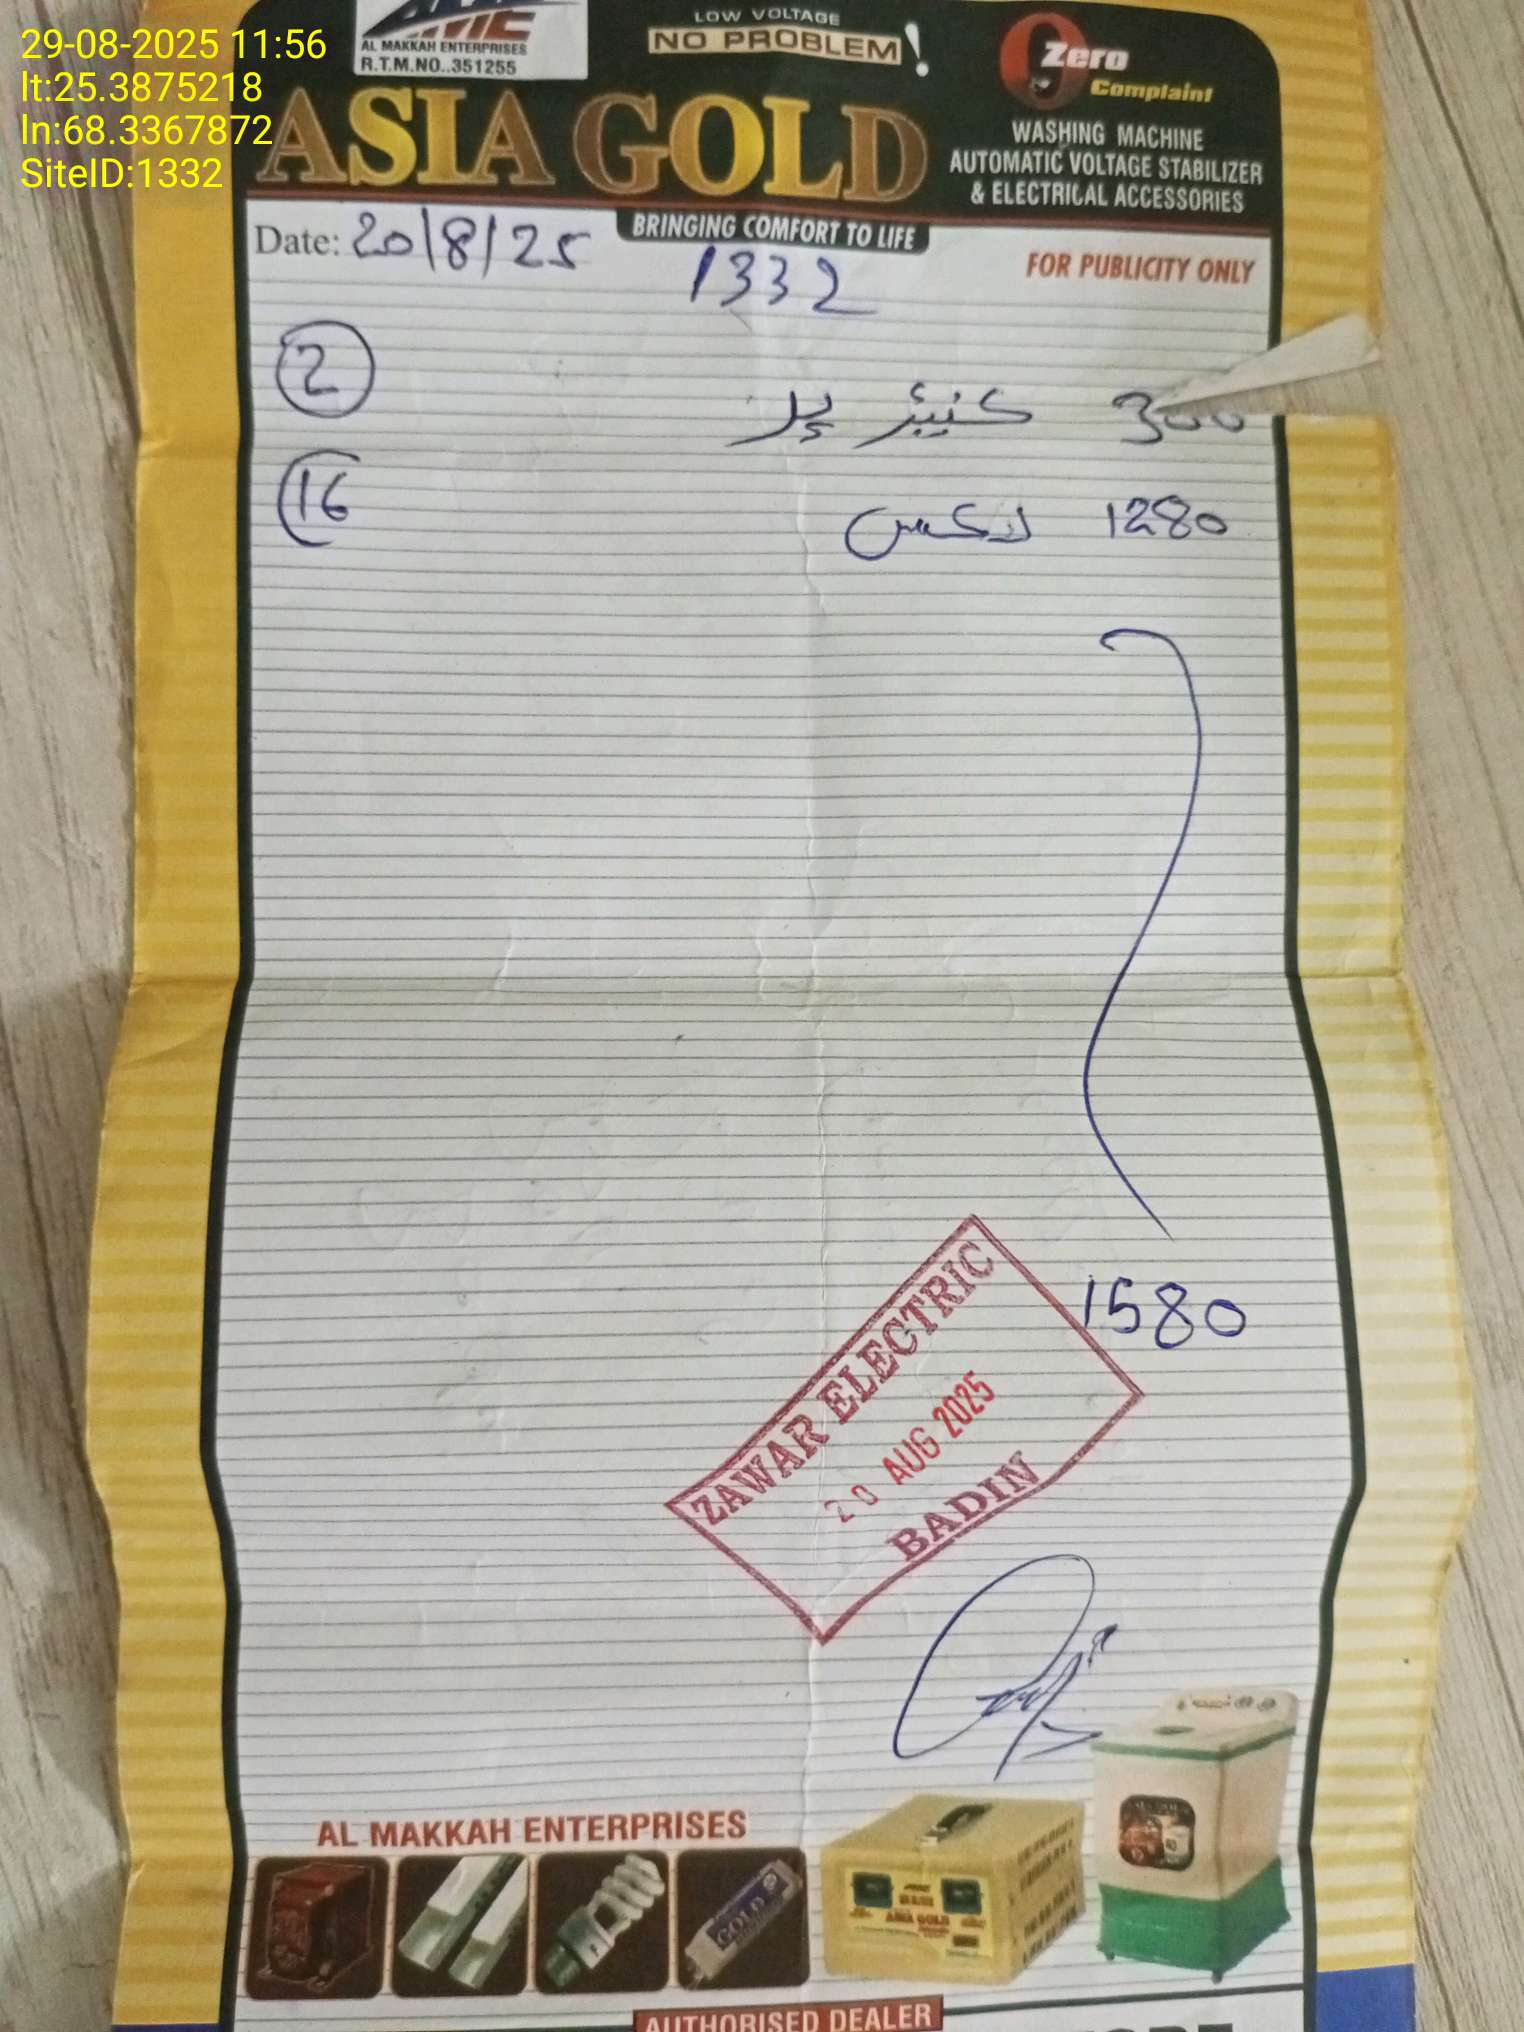 29-08-2025 11:56
lt:25.3875218
ln:68.3367872
SiteID:1332
AL MAKKAH ENTERPRISES
R.T.M.NO..351255
LOW VOLTAGE
NO PROBLEM!
Zero
Complaint
ASIA GOLD
WASHING MACHINE
AUTOMATIC VOLTAGE STABILIZER
& ELECTRICAL ACCESSORIES
BRINGING COMFORT TO LIFE
Date: 20/8/25
FOR PUBLICITY ONLY
1332
2 300
16 لاكس 1280
1580
ZAWAR ELECTRIC
20 AUG 2025
BADIN
AL MAKKAH ENTERPRISES
GOLD
ASIA GOLD
AUTHORISED DEALER